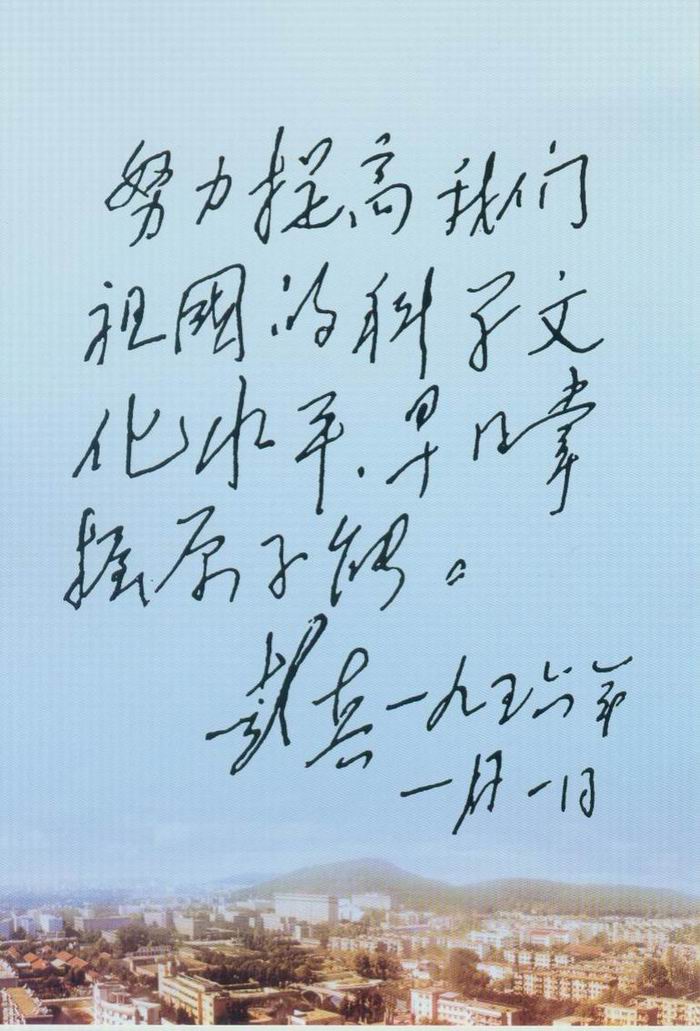 努力提高我们
祖國的科学文
化水平,早日掌
握原子能。
彭真一九五六年
一月一日